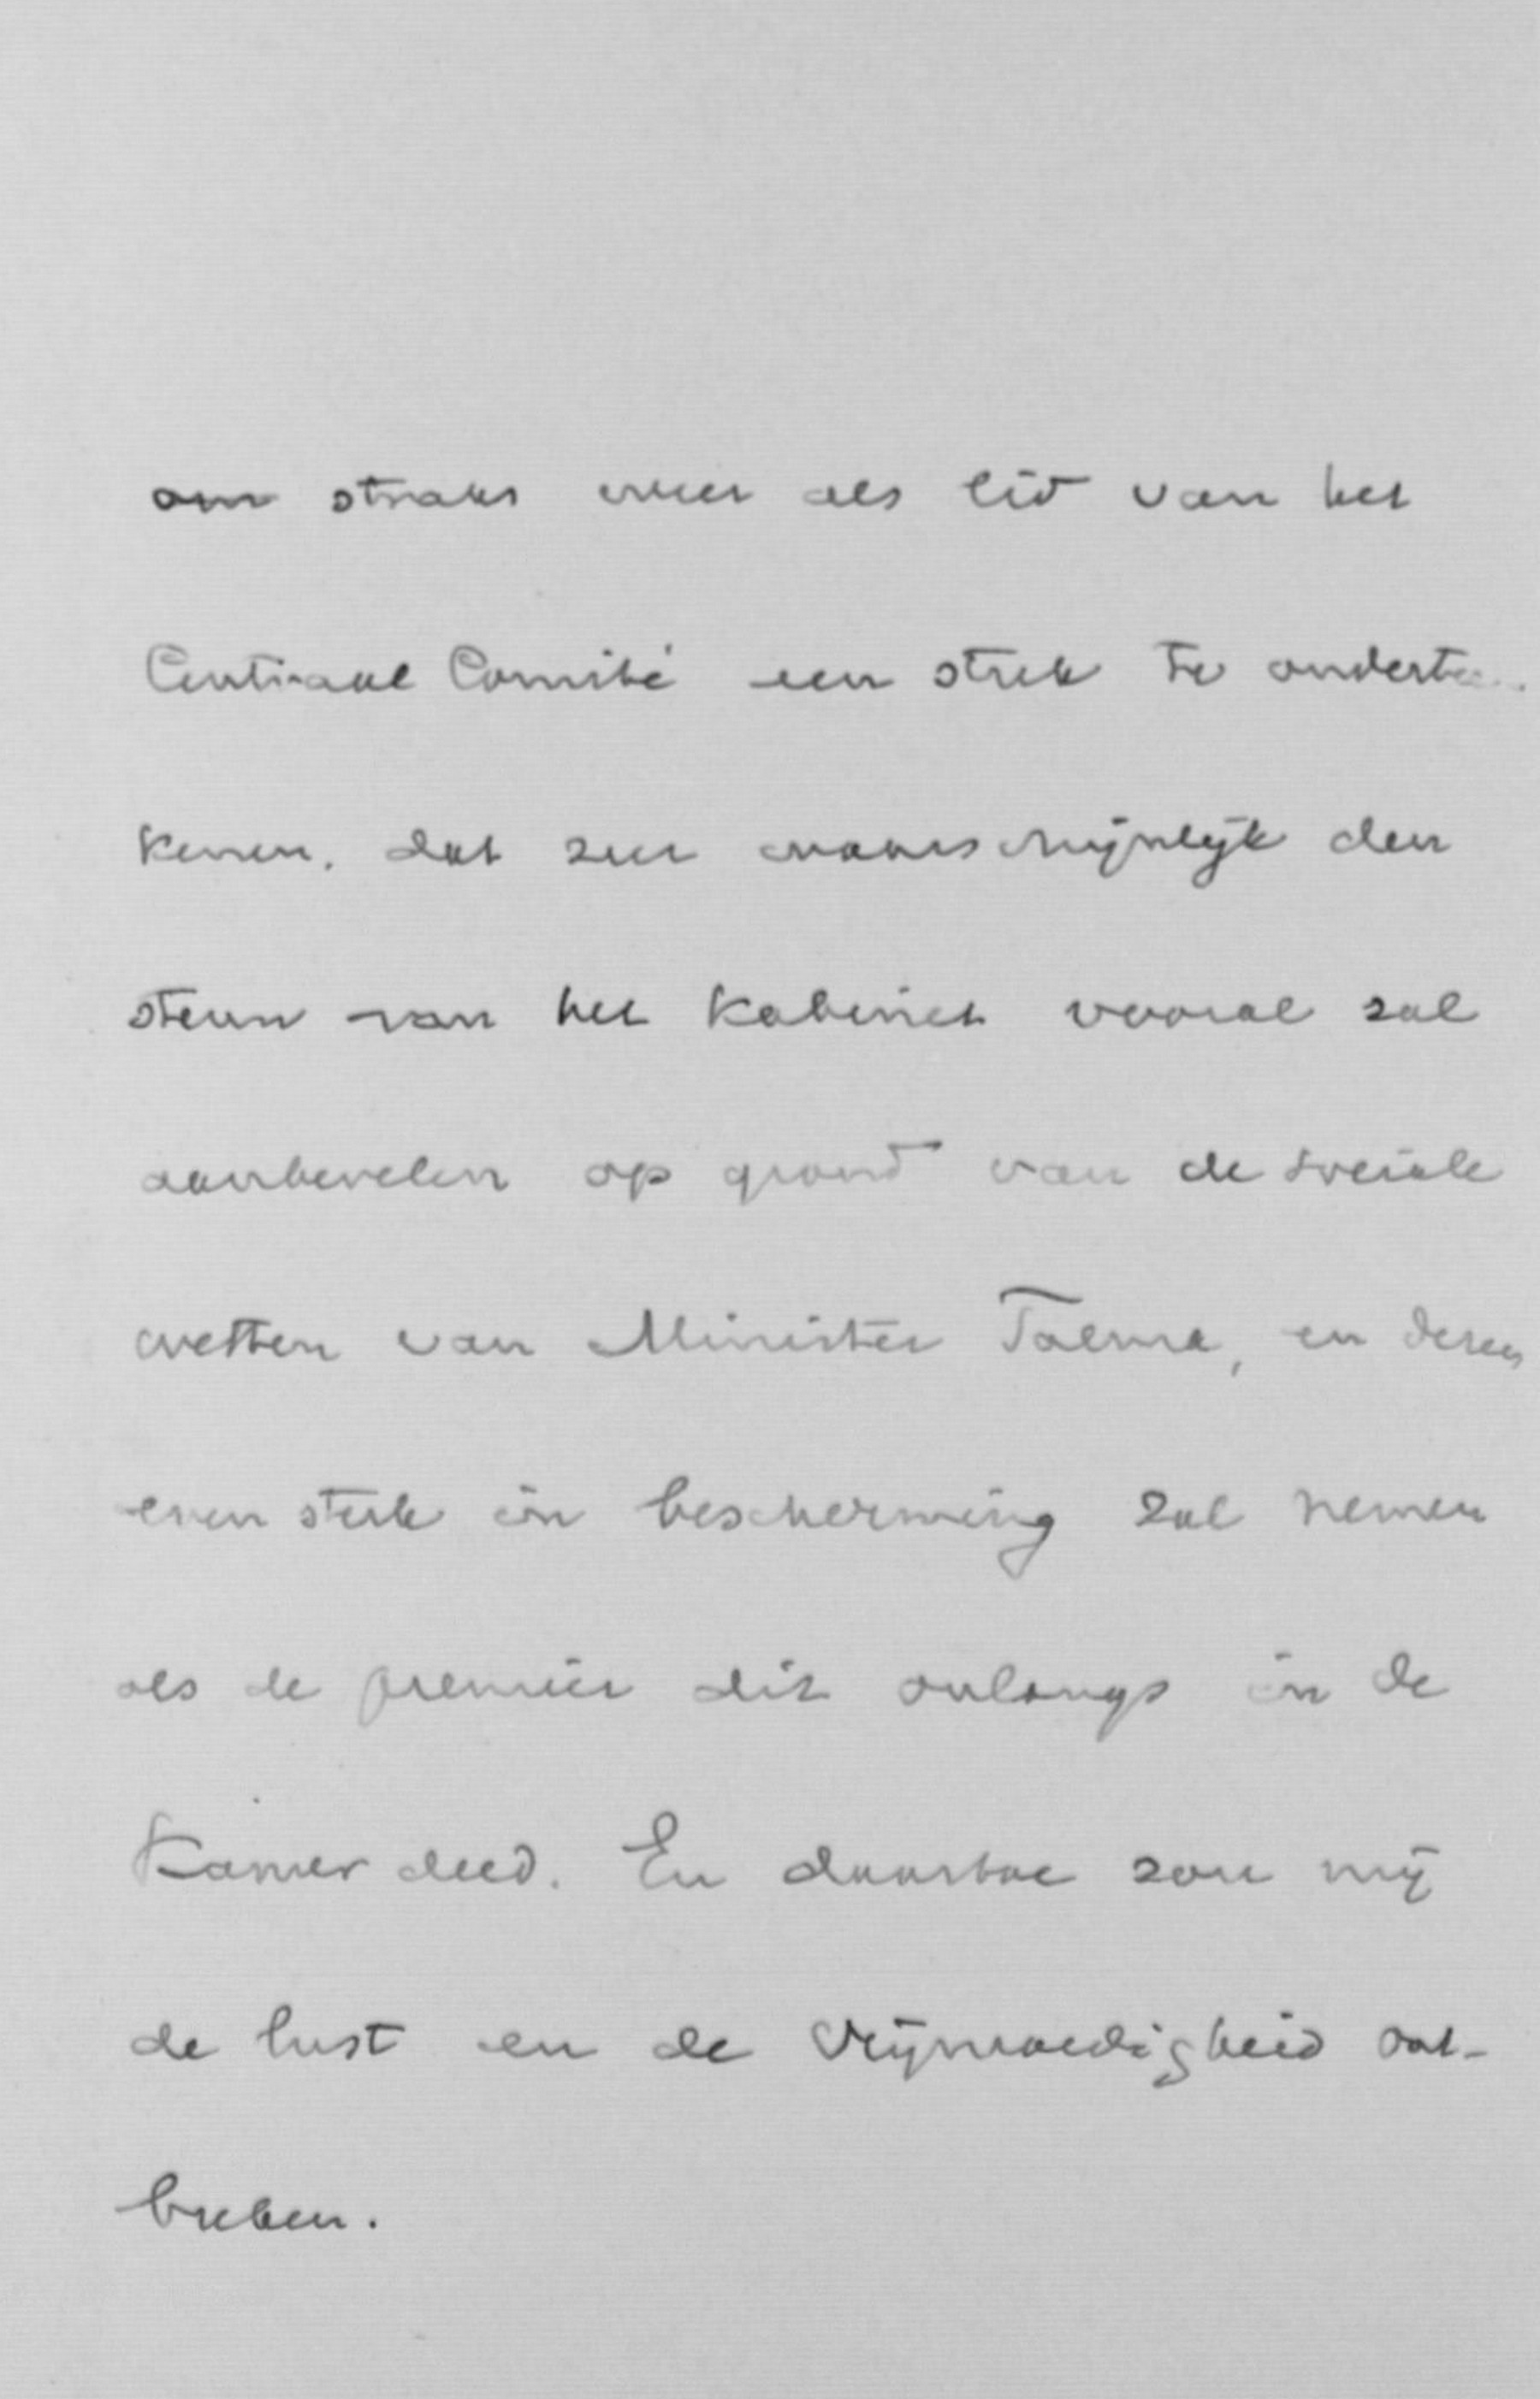 om straks weer als lid van het
Centraal Comité een stuk te onderte
kenen, dat zeer waarschijnlijk den
steun van het Kabinet vooral zal
aanbevelen op grond van de sociale
wetten van Minister Talma, en dezen
even sterk in bescherming zal nemen
als de premier dit onlangs in de
Kamer deed. En daartoe zou mij
de lust en de vrijmoedigheid ont-
breken.